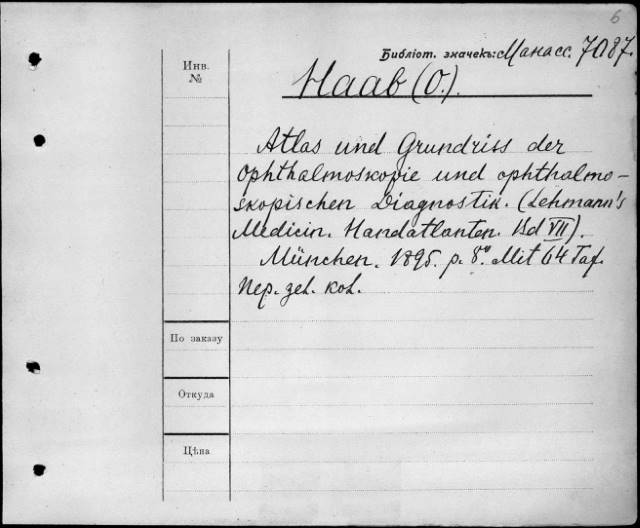 6
Библіот. значекъ: Манасс. 7087.
Инв.
№
Haab (O.).
Atlas und Grundriss der
Ophthalmoskopie und ophthalmo-
skopischen Diagnostik. (Lehmann's
Medicin. Handatlanten. Bd VII).
München. 1895. p. 8°. Mit 64 Taf.
Пер. зел. кол.
По заказу
Откуда
Цѣна